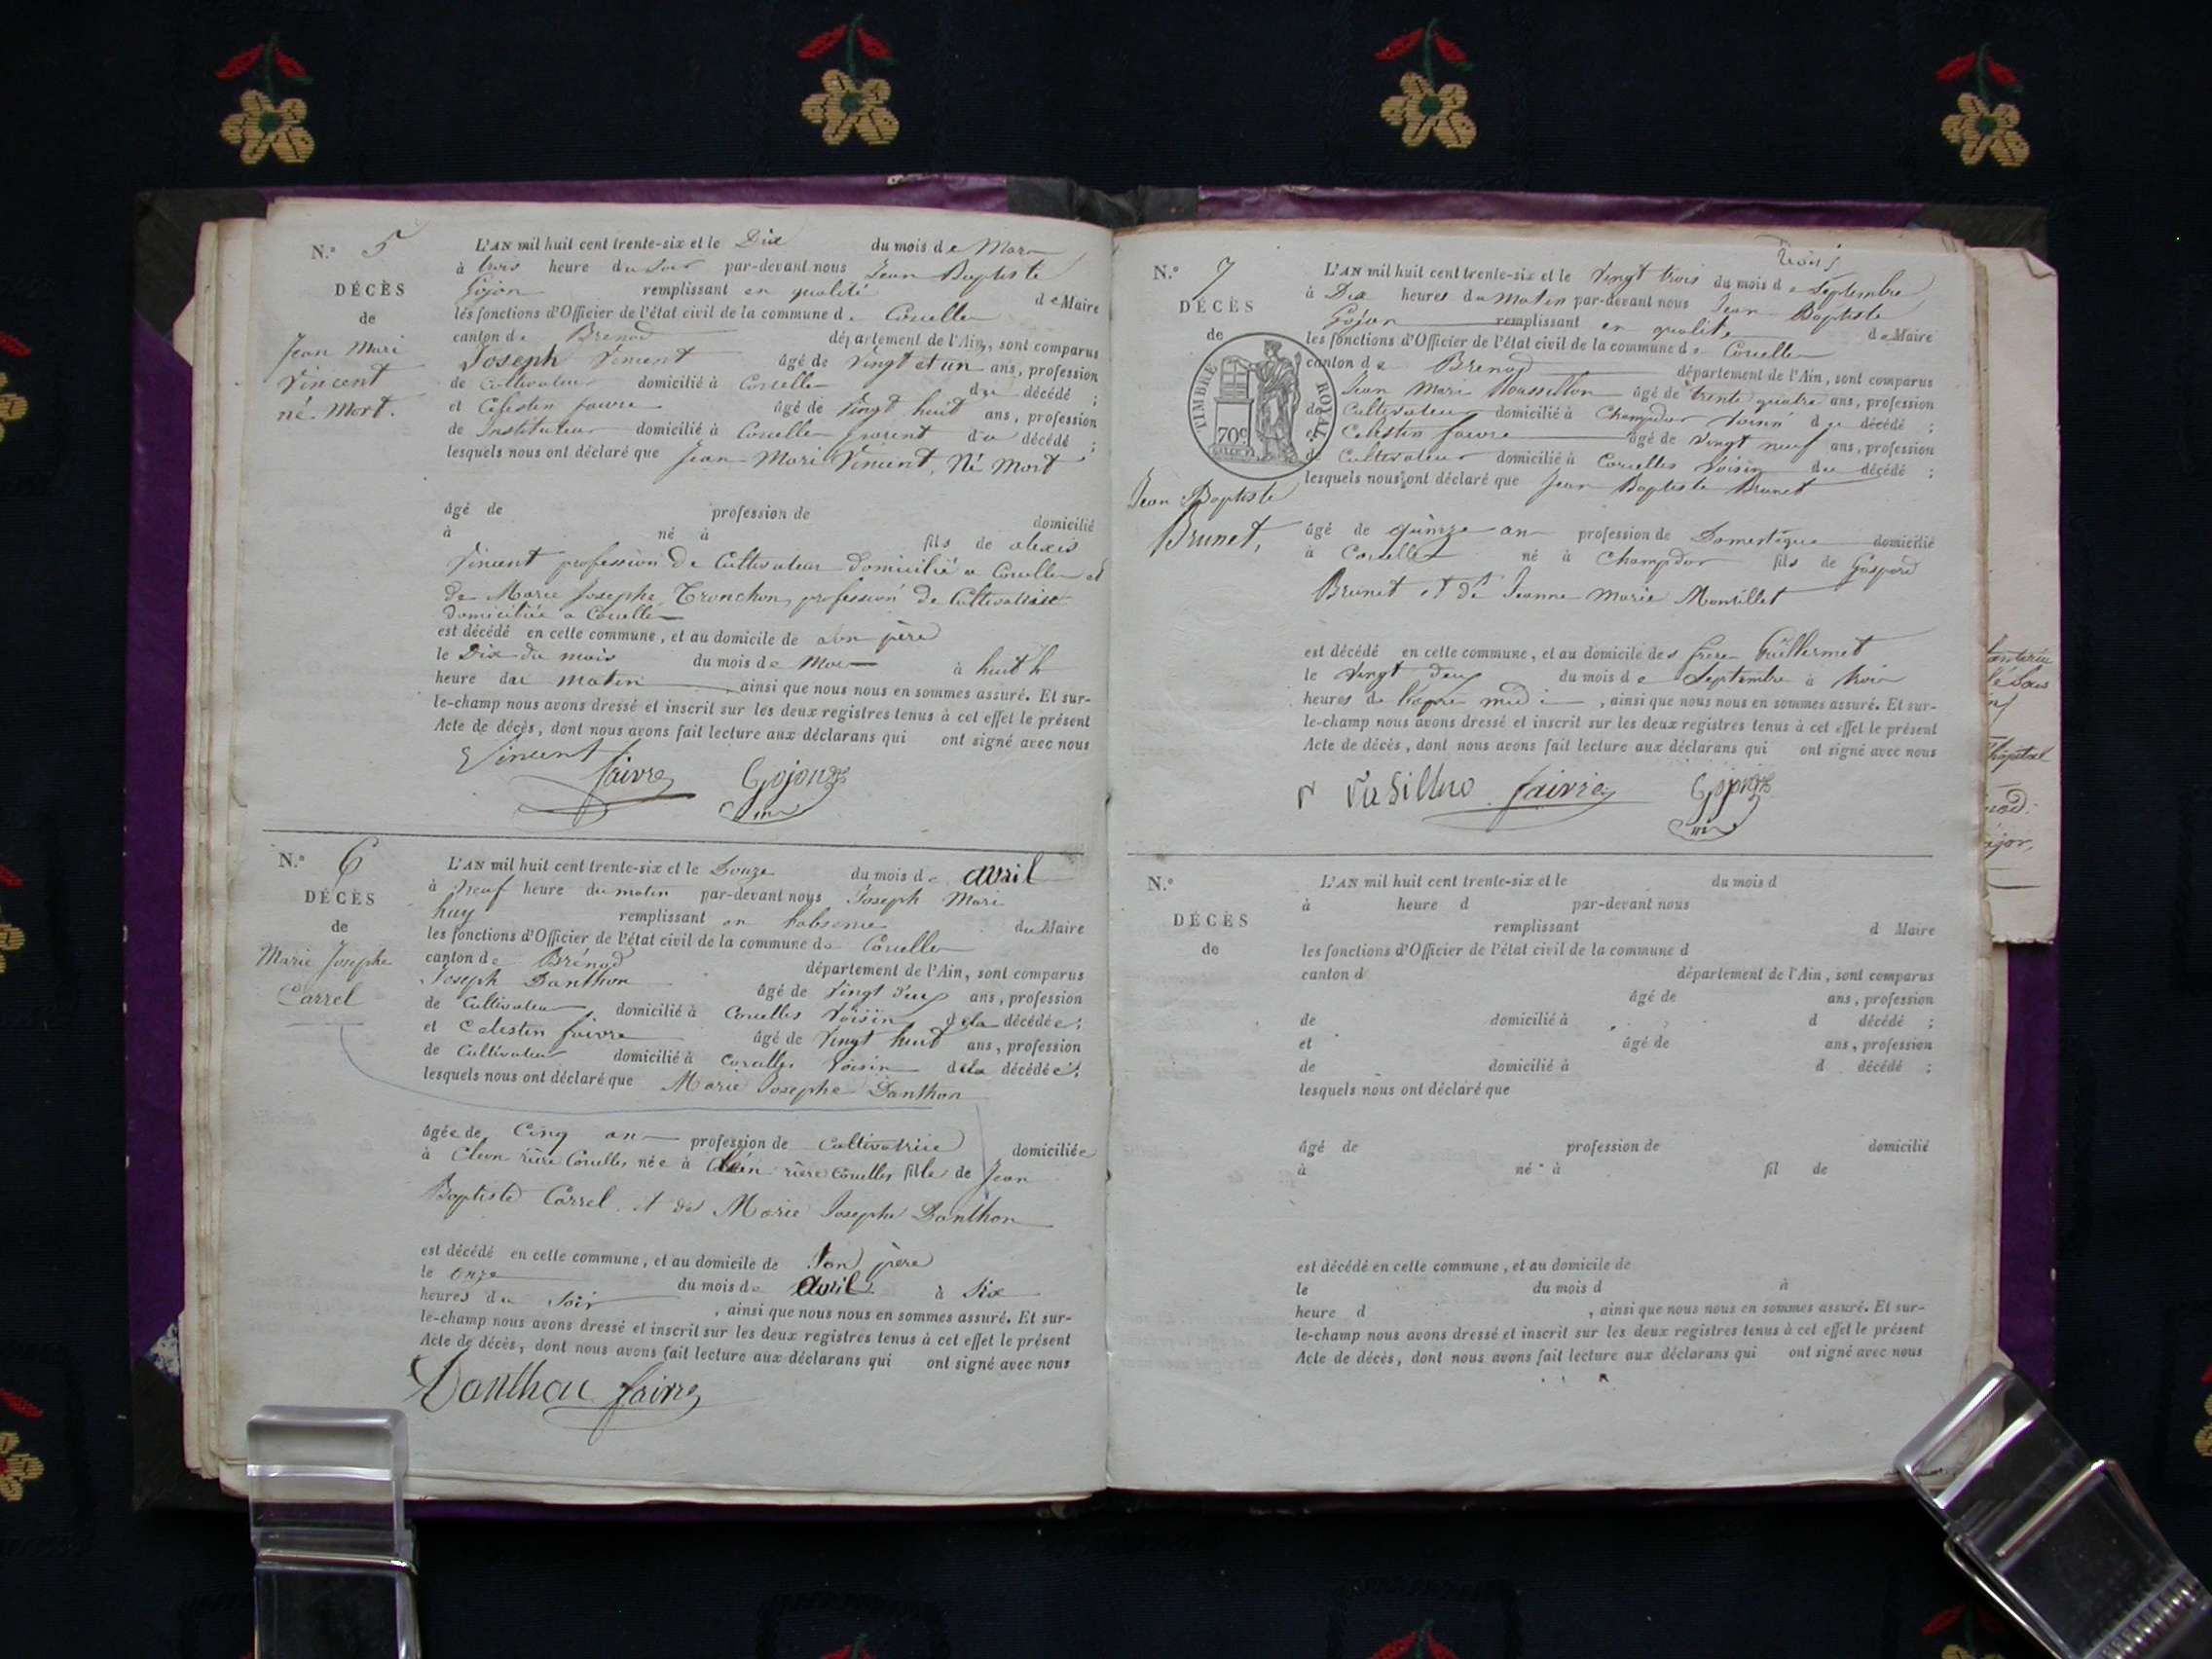 N.º 5
DÉCÈS
de
Jean Mari
Vincent
né-Mort.
L'AN mil huit cent trente-six et le Dix du mois de Mars
à trois heure du soir par-devant nous Jean Baptiste
Gojon remplissant en qualité de Maire
les fonctions d'Officier de l'état civil de la commune de Corcelle
canton de Brenod département de l'Ain, sont comparus
Joseph Vincent âgé de Vingt et un ans, profession
de Cultivateur domicilié à Corcelle du décédé ;
et Célestin faivre âgé de Vingt huit ans, profession
de Instituteur domicilié à Corcelle parent du décédé ;
lesquels nous ont déclaré que Jean Mari Vincent, Né Mort
âgé de profession de domicilié
à né à fils de alexis
Vincent profession de Cultivateur domicilié a Corcelle et
de Marie Josephe Tronchon, profession de Cultivatrice
domiciliée a Corcelle
est décédé en cette commune, et au domicile de son père
le Dix du mois du mois de Mars à huit h
heure du matin ainsi que nous nous en sommes assuré. Et sur-
le-champ nous avons dressé et inscrit sur les deux registres tenus à cet effet le présent
Acte de décès, dont nous avons fait lecture aux déclarans qui ont signé avec nous
Vincent
faivre Gojon
N.º 6
DÉCÈS
de
Marie Josephe
Carrel
L'AN mil huit cent trente-six et le Douze du mois de avril
à Neuf heure du matin par-devant nous Joseph Mari
huy remplissant en du Maire
les fonctions d'Officier de l'état civil de la commune de Corcelle
canton de Brénod département de l'Ain, sont comparus
Joseph Danthon âgé de Vingt deux ans, profession
de Cultivateur domicilié à Corcelles Voisin de la décédée ;
et Célestin faivre âgé de Vingt huit ans, profession
de Cultivateur domicilié à Corcelles Voisin de la décédée ;
lesquels nous ont déclaré que Marie Josephe Danthon
âgée de Cinq ans profession de Cultivatrice domiciliée
à rière Corcelles née à rière Corcelles fille de Jean
Baptiste Carrel et de Marie Josephe Danthon
est décédé en cette commune, et au domicile de son père
le onze du mois de avril à six
heures du soir , ainsi que nous nous en sommes assuré. Et sur-
le-champ nous avons dressé et inscrit sur les deux registres tenus à cet effet le présent
Acte de décès, dont nous avons fait lecture aux déclarans qui ont signé avec nous
Danthon faivre
trois
N.º 7
DÉCÈS
de
TIMBRE ROYAL
70c
Jean Baptiste
Brunet,
L'AN mil huit cent trente-six et le Vingt trois du mois de Septembre
à Dix heures du Matin par-devant nous Jean Baptiste
Gojon remplissant en qualité de Maire
les fonctions d'Officier de l'état civil de la commune de Corcelle
canton de Brenod département de l'Ain, sont comparus
Jean Mari Roussillon âgé de trente quatre ans, profession
de Cultivateur domicilié à Champdor Voisin du décédé ;
et Célestin faivre âgé de Vingt neuf ans, profession
de Cultivateur domicilié à Corcelles Voisin du décédé ;
lesquels nous ont déclaré que Jean Baptiste Brunet
âgé de quinze ans profession de Domestique domicilié
à Corcelles né à Champdor fils de Gaspard
Brunet et de Jeanne Marie Monsillet
est décédé en cette commune, et au domicile des frères Guillermet
le Vingt deux du mois de Septembre à trois
heures de l'après midi , ainsi que nous nous en sommes assuré. Et sur-
le-champ nous avons dressé et inscrit sur les deux registres tenus à cet effet le présent
Acte de décès, dont nous avons fait lecture aux déclarans qui ont signé avec nous
faivre Gojon
N.º
DÉCÈS
de
L'AN mil huit cent trente-six et le du mois d
à heure d par-devant nous
remplissant d Maire
les fonctions d'Officier de l'état civil de la commune d
canton d département de l'Ain, sont comparus
âgé de ans, profession
de domicilié à d décédé ;
et âgé de ans, profession
de domicilié à d décédé ;
lesquels nous ont déclaré que
âgé de profession de domicilié
à né à fil de
est décédé en cette commune, et au domicile de
le du mois d à
heure d , ainsi que nous nous en sommes assuré. Et sur-
le-champ nous avons dressé et inscrit sur les deux registres tenus à cet effet le présent
Acte de décès, dont nous avons fait lecture aux déclarans qui ont signé avec nous